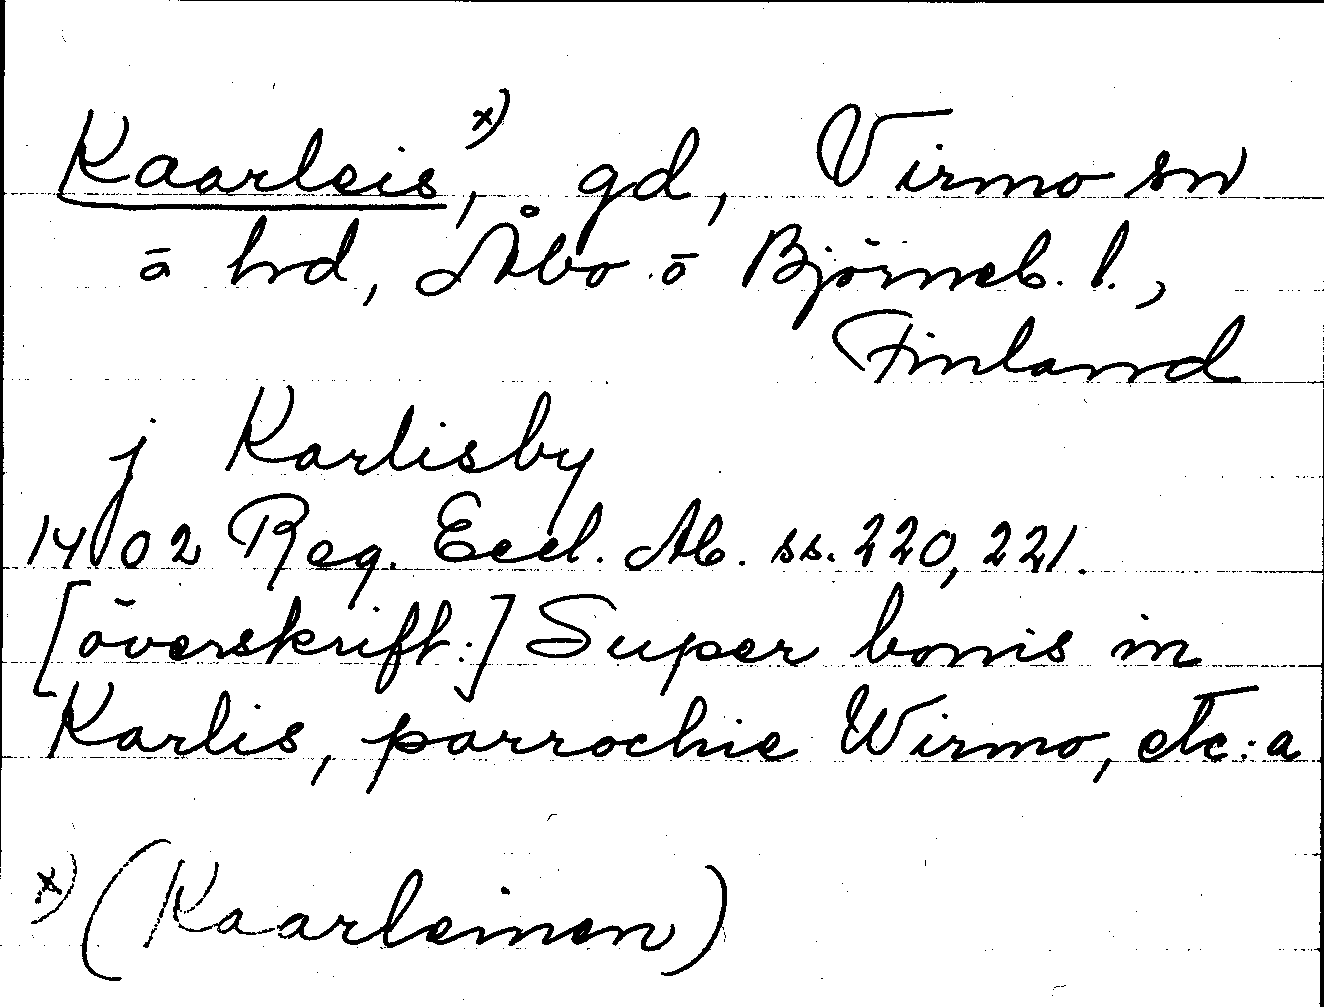 Kaarleis, x) gd, Virmo sn
o hd, Åbo o Björneb. l.,
Finland
j Karlisby
1402 Reg. Eccl. Ab. ss. 220, 221.
[överskrift:] Super bonis in
Karlis, parrochie Wirmo, etc:a
x) (Kaarleinen)